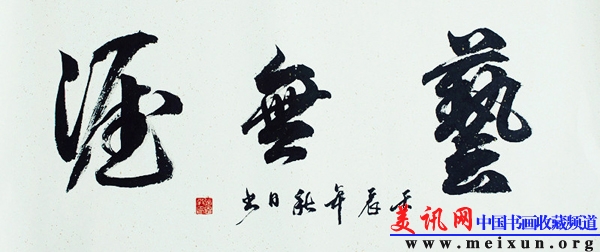 藝無涯
壬辰年秋日书
美讯网 中国书画收藏频道
www.meixun.org